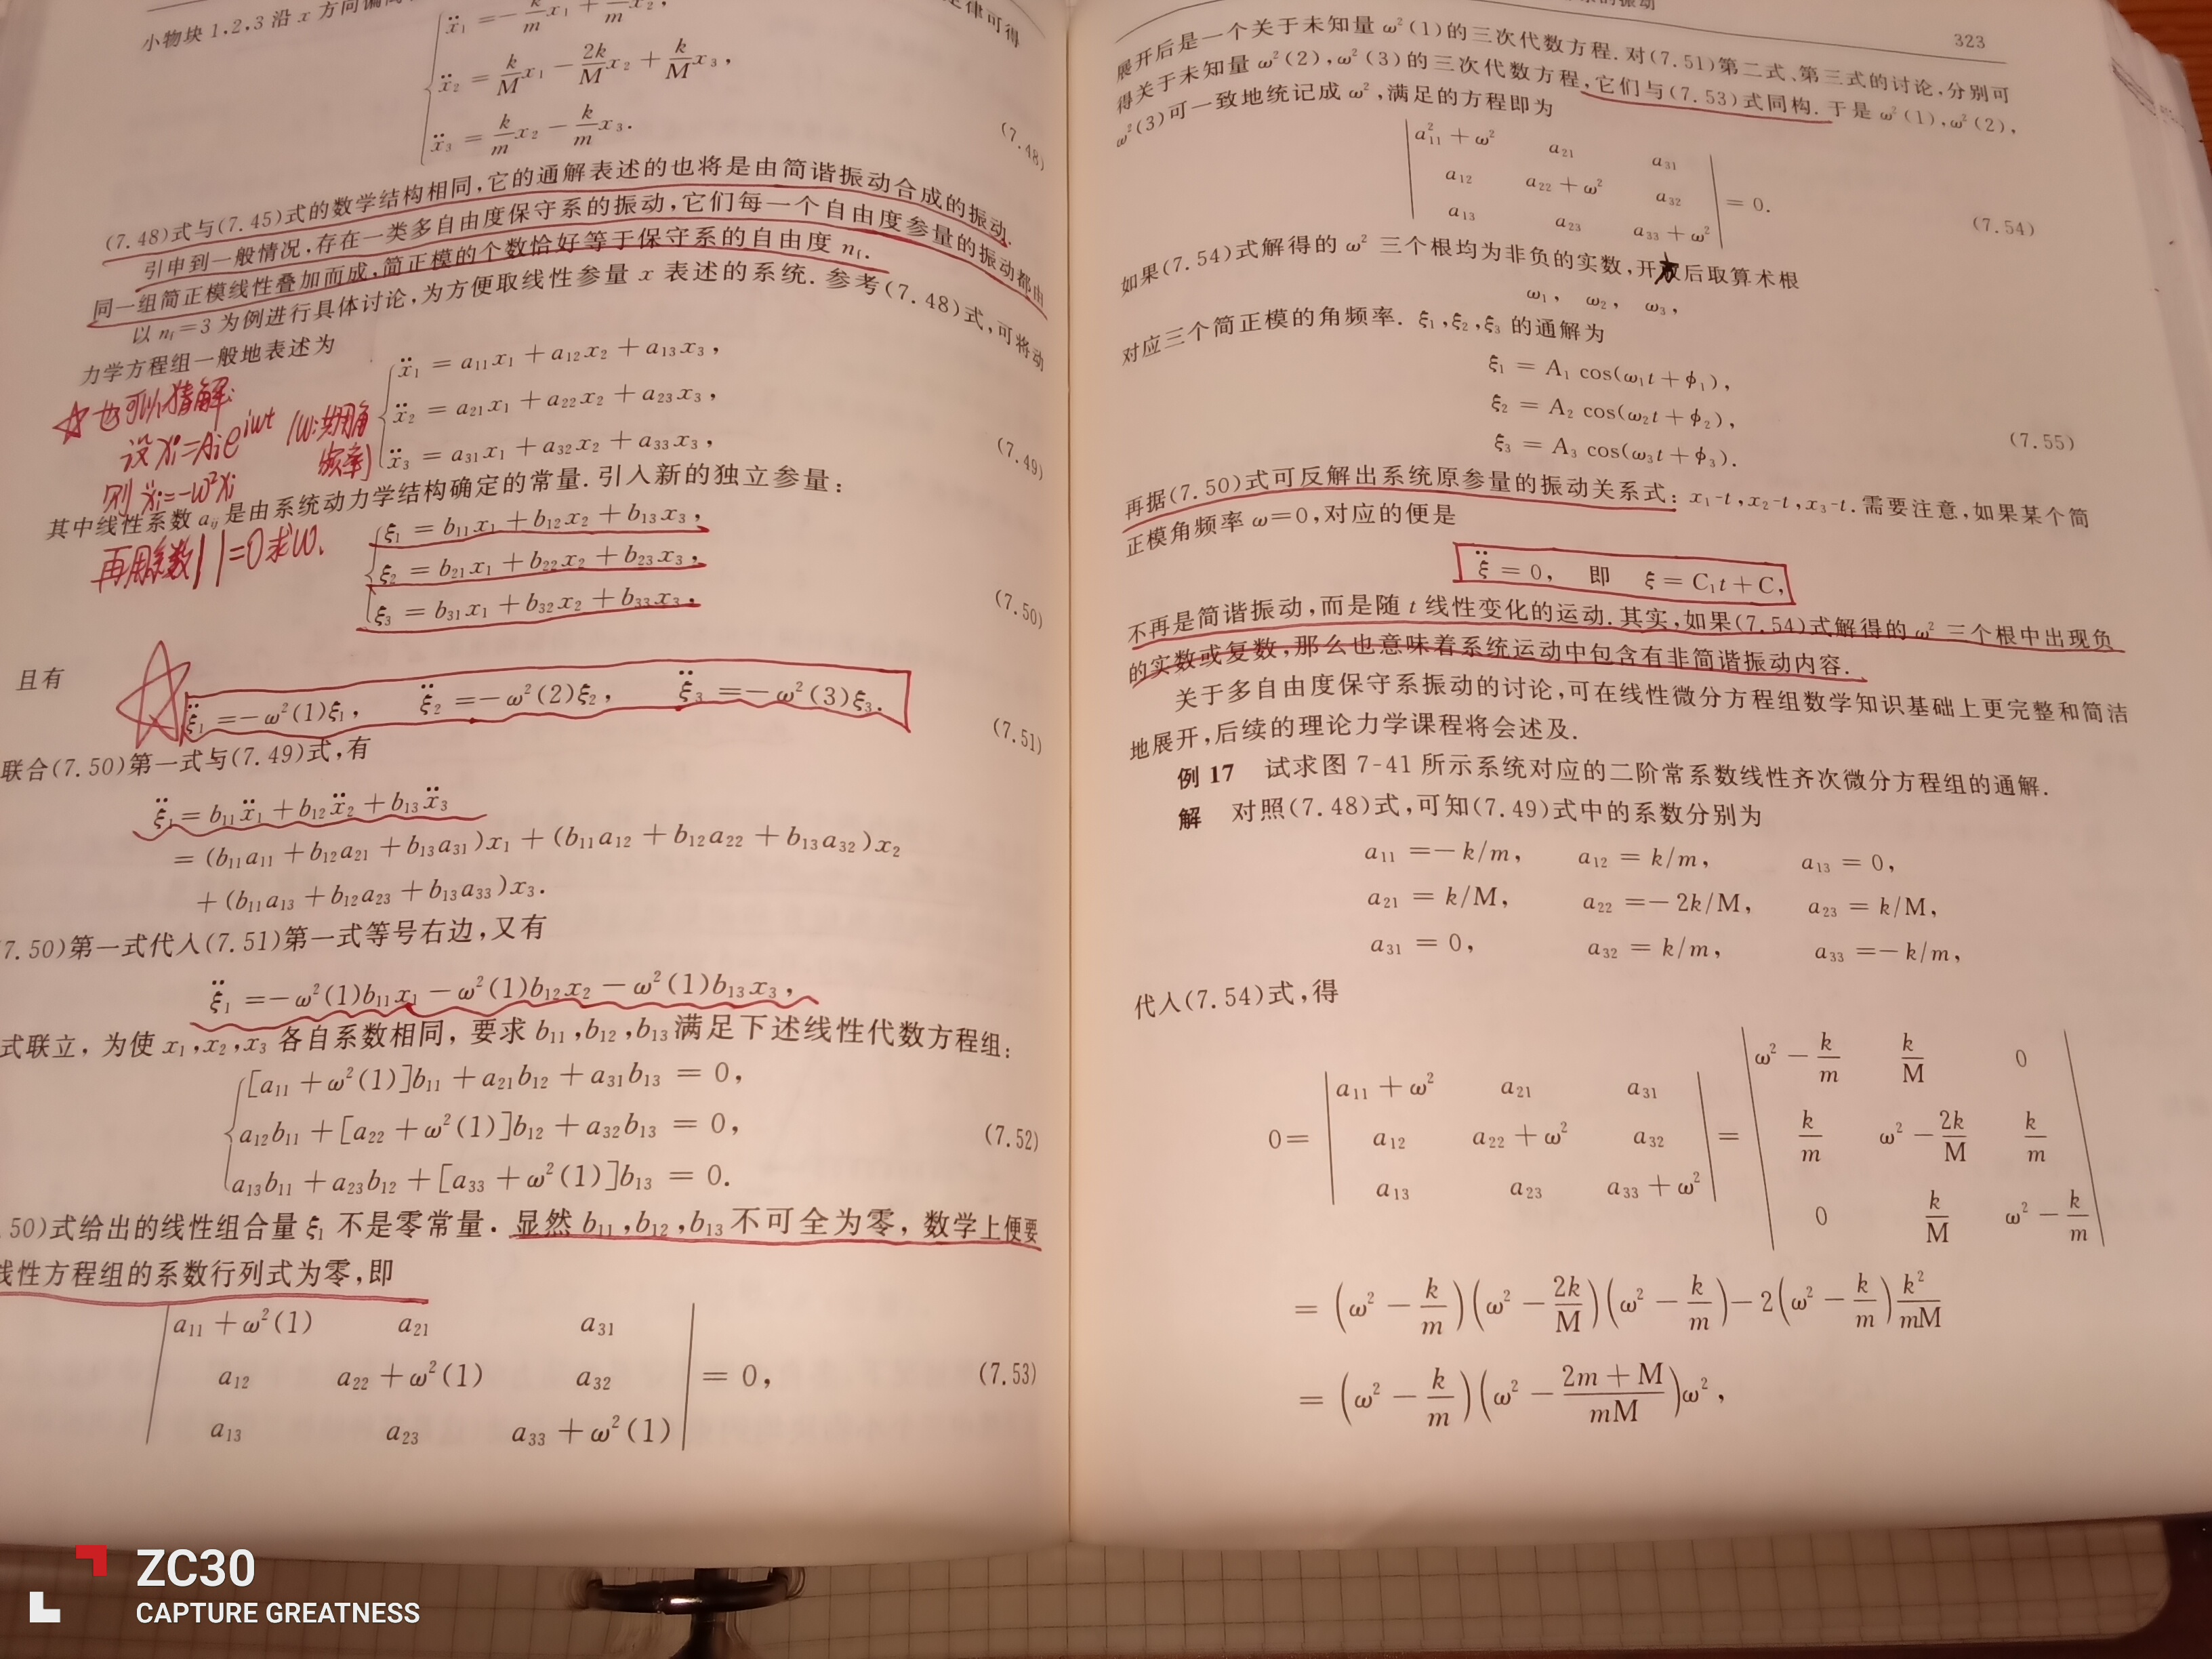 小物块1,2,3沿x方向偏离
律可得
ẍ₁ = -k/m x₁ + k/m x₂,
ẍ₂ = k/M x₁ - 2k/M x₂ + k/M x₃,
ẍ₃ = k/m x₂ - k/m x₃.
(7.48)
(7.48)式与(7.45)式的数学结构相同,它的通解表述的也将是由简谐振动合成的振动.
引申到一般情况,存在一类多自由度保守系的振动,它们每一个自由度参量的振动都由
同一组简正模线性叠加而成,简正模的个数恰好等于保守系的自由度 n_f.
以 n_f=3 为例进行具体讨论,为方便取线性参量 x 表述的系统. 参考(7.48)式,可将动
力学方程组一般地表述为
ẍ₁ = a₁₁x₁ + a₁₂x₂ + a₁₃x₃,
ẍ₂ = a₂₁x₁ + a₂₂x₂ + a₂₃x₃,
ẍ₃ = a₃₁x₁ + a₃₂x₂ + a₃₃x₃,
(7.49)
☆也可以猜解:
设xᵢ=Aᵢe^{iωt} (ω:共用角
频率)
则 ẍᵢ=-ω²xᵢ
再用系数| |=0求ω.
其中线性系数 aᵢⱼ 是由系统动力学结构确定的常量. 引入新的独立参量:
ξ₁ = b₁₁x₁ + b₁₂x₂ + b₁₃x₃,
ξ₂ = b₂₁x₁ + b₂₂x₂ + b₂₃x₃,
ξ₃ = b₃₁x₁ + b₃₂x₂ + b₃₃x₃,
(7.50)
且有
ξ̈₁ = -ω²(1)ξ₁, ξ̈₂ = -ω²(2)ξ₂, ξ̈₃ = -ω²(3)ξ₃.
(7.51)
联合(7.50)第一式与(7.49)式,有
ξ̈₁ = b₁₁ẍ₁ + b₁₂ẍ₂ + b₁₃ẍ₃
= (b₁₁a₁₁ + b₁₂a₂₁ + b₁₃a₃₁)x₁ + (b₁₁a₁₂ + b₁₂a₂₂ + b₁₃a₃₂)x₂
+ (b₁₁a₁₃ + b₁₂a₂₃ + b₁₃a₃₃)x₃.
7.50)第一式代入(7.51)第一式等号右边,又有
ξ̈₁ = -ω²(1)b₁₁x₁ - ω²(1)b₁₂x₂ - ω²(1)b₁₃x₃,
式联立, 为使 x₁,x₂,x₃ 各自系数相同, 要求 b₁₁,b₁₂,b₁₃ 满足下述线性代数方程组:
[a₁₁ + ω²(1)]b₁₁ + a₂₁b₁₂ + a₃₁b₁₃ = 0,
a₁₂b₁₁ + [a₂₂ + ω²(1)]b₁₂ + a₃₂b₁₃ = 0,
a₁₃b₁₁ + a₂₃b₁₂ + [a₃₃ + ω²(1)]b₁₃ = 0.
(7.52)
.50)式给出的线性组合量 ξ₁ 不是零常量. 显然 b₁₁,b₁₂,b₁₃ 不可全为零, 数学上便要
线性方程组的系数行列式为零,即
| a₁₁ + ω²(1) a₂₁ a₃₁ |
| a₁₂ a₂₂ + ω²(1) a₃₂ | = 0,
| a₁₃ a₂₃ a₃₃ + ω²(1) |
(7.53)
的振动
323
展开后是一个关于未知量 ω²(1)的三次代数方程. 对(7.51)第二式、第三式的讨论,分别可
得关于未知量 ω²(2),ω²(3)的三次代数方程,它们与(7.53)式同构. 于是 ω²(1),ω²(2),
ω²(3)可一致地统记成 ω²,满足的方程即为
| a²₁₁ + ω² a₂₁ a₃₁ |
| a₁₂ a₂₂ + ω² a₃₂ | = 0.
| a₁₃ a₂₃ a₃₃ + ω² |
(7.54)
如果(7.54)式解得的 ω² 三个根均为非负的实数,开后取算术根
ω₁, ω₂, ω₃,
对应三个简正模的角频率. ξ₁,ξ₂,ξ₃ 的通解为
ξ₁ = A₁ cos(ω₁t + φ₁),
ξ₂ = A₂ cos(ω₂t + φ₂),
ξ₃ = A₃ cos(ω₃t + φ₃).
(7.55)
再据(7.50)式可反解出系统原参量的振动关系式: x₁-t,x₂-t,x₃-t. 需要注意,如果某个简
正模角频率 ω=0,对应的便是
ξ̈ = 0, 即 ξ = C₁t + C,
不再是简谐振动,而是随 t 线性变化的运动. 其实,如果(7.54)式解得的 ω² 三个根中出现负
的实数或复数,那么也意味着系统运动中包含有非简谐振动内容.
关于多自由度保守系振动的讨论,可在线性微分方程组数学知识基础上更完整和简洁
地展开,后续的理论力学课程将会述及.
例 17 试求图 7-41 所示系统对应的二阶常系数线性齐次微分方程组的通解.
解 对照(7.48)式,可知(7.49)式中的系数分别为
a₁₁ = -k/m, a₁₂ = k/m, a₁₃ = 0,
a₂₁ = k/M, a₂₂ = -2k/M, a₂₃ = k/M,
a₃₁ = 0, a₃₂ = k/m, a₃₃ = -k/m,
代入(7.54)式,得
| a₁₁ + ω² a₂₁ a₃₁ | | ω² - k/m k/M 0 |
0 = | a₁₂ a₂₂ + ω² a₃₂ | = | k/m ω² - 2k/M k/m |
| a₁₃ a₂₃ a₃₃ + ω² | | 0 k/M ω² - k/m |
= (ω² - k/m)(ω² - 2k/M)(ω² - k/m) - 2(ω² - k/m)k²/mM
= (ω² - k/m)(ω² - (2m + M)/mM)ω²,
ZC30
CAPTURE GREATNESS